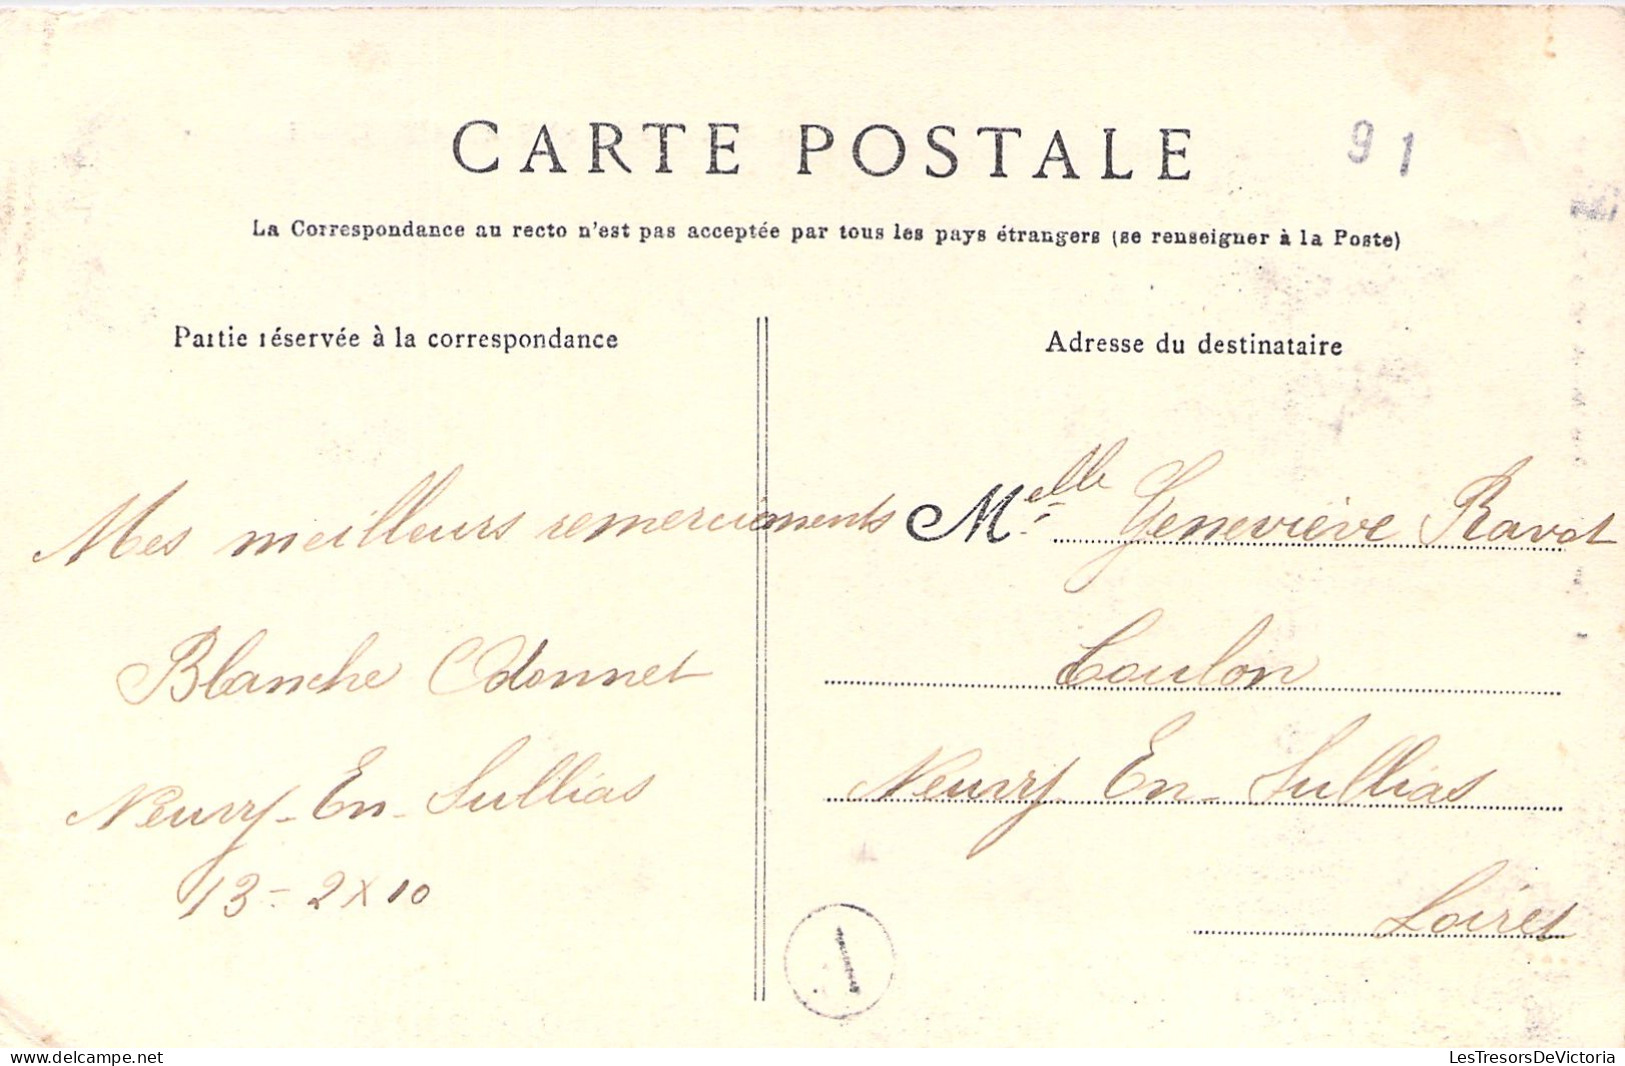 CARTE POSTALE
91
La Correspondance au recto n'est pas acceptée par tous les pays étrangers (se renseigner à la Poste)
Partie réservée à la correspondance
Mes meilleurs remerciements
Blanche Odonnet
Neuvy-En-Sullias
13-2 x 10
Adresse du destinataire
M.elle Geneviève Ravot
Coulon
Neuvy En-Sullias
Loiret
1
delcampe.net
LesTresorsDeVictoria